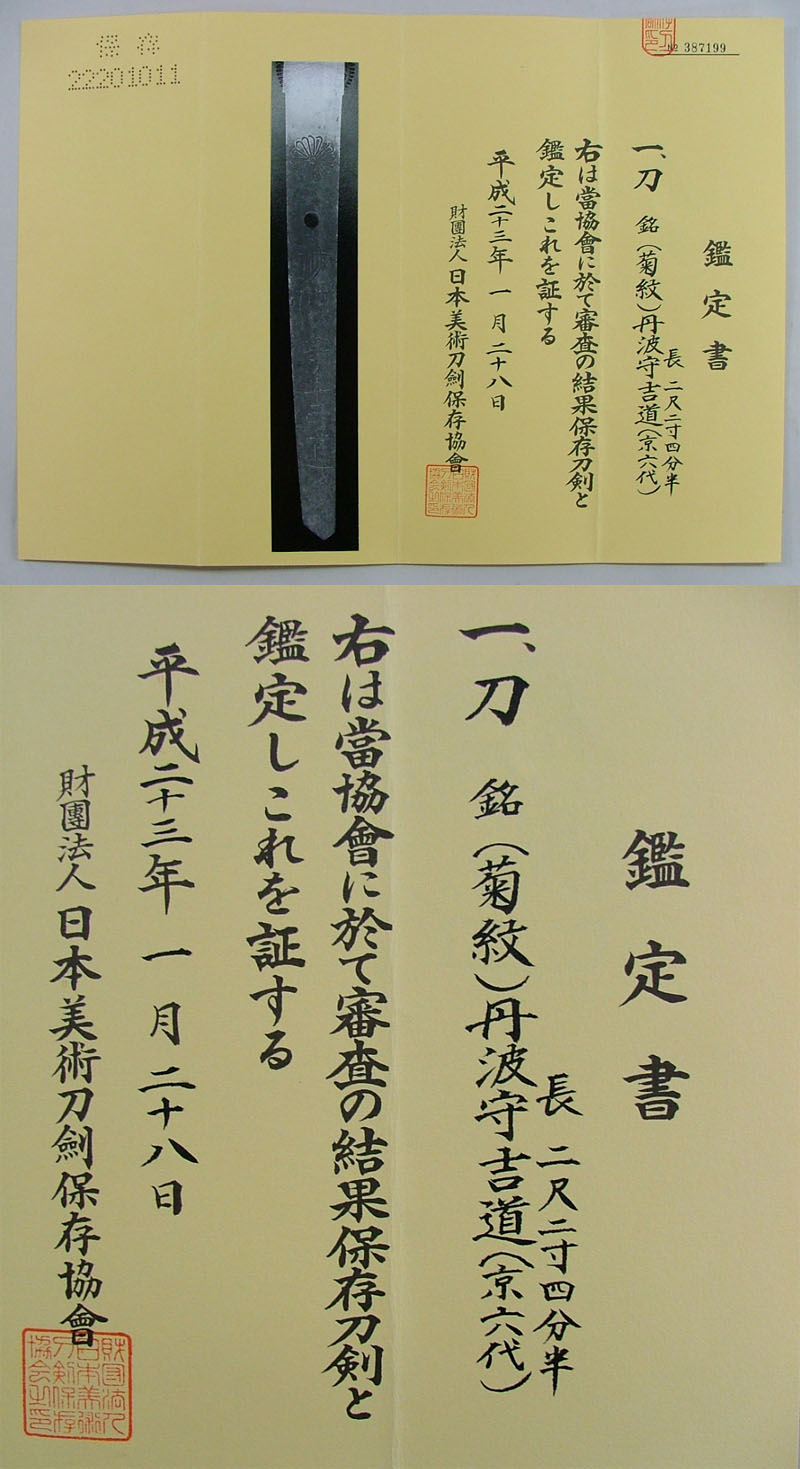 保存
22201011
№ 387199
鑑定書
一、刀 銘(菊紋)丹波守吉道(京六代)
長 二尺二寸四分半
右は當協會に於て審査の結果保存刀剣と
鑑定しこれを証する
平成二十三年 一月 二十八日
財團法人 日本美術刀劍保存協會
鑑定書
一、刀 銘(菊紋)丹波守吉道(京六代)
長 二尺二寸四分半
右は當協會に於て審査の結果保存刀剣と
鑑定しこれを証する
平成二十三年 一月 二十八日
財團法人 日本美術刀劍保存協會
財団法人
日本美術
刀剣保存
協会之印